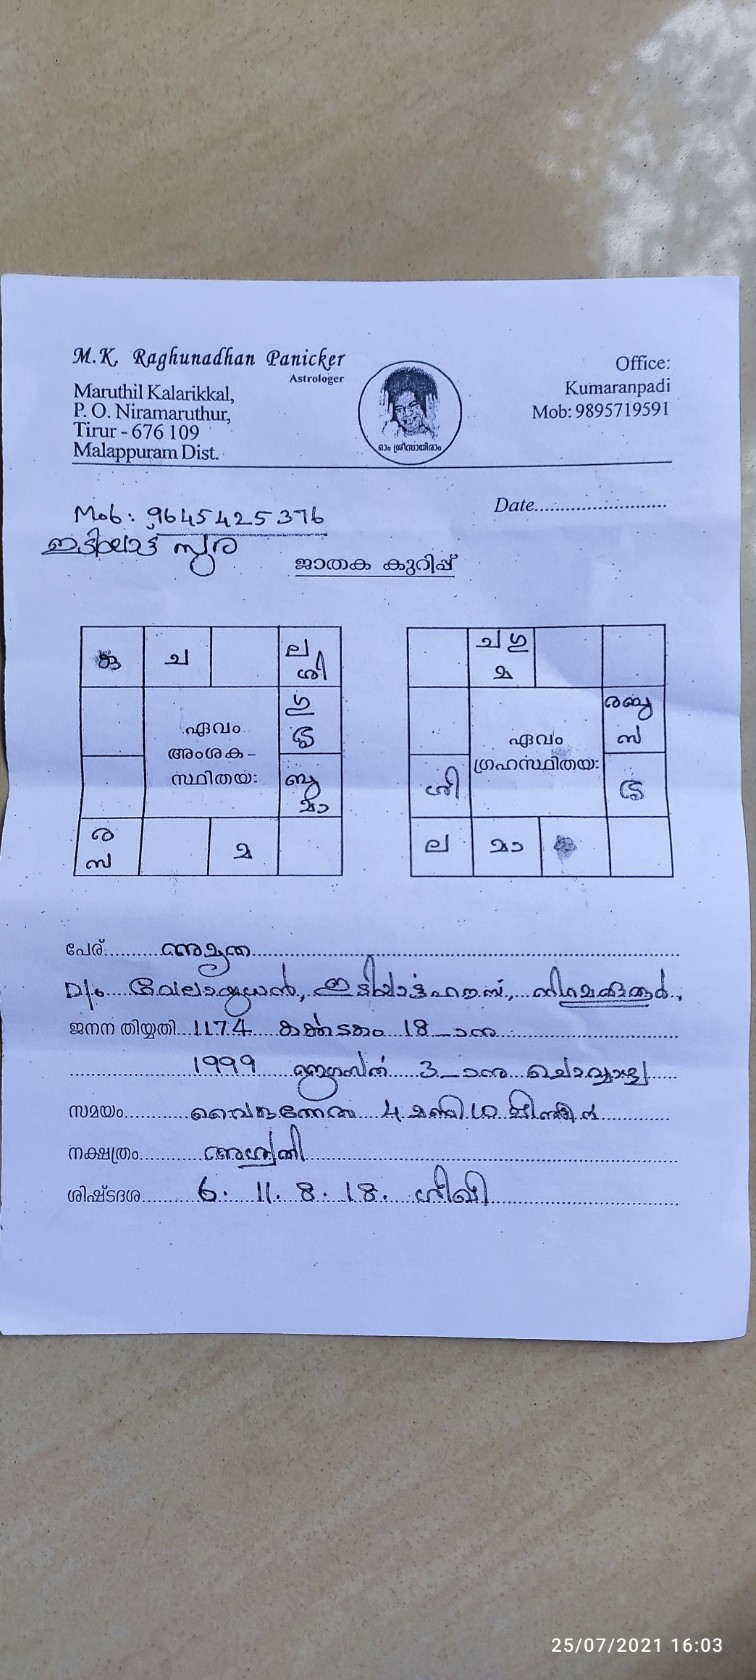 M.K. Raghunadhan Panicker
Astrologer
Maruthil Kalarikkal,
P. O. Niramaruthur,
Tirur - 676 109
Malappuram Dist.
ഓം ശ്രീസായിരാം
Office:
Kumaranpadi
Mob: 9895719591
Date
Mob: 9645425376
ജാതക കുറിപ്പ്
ച
ല
ശി
ഗു
ശു
ബു
മാ
ര
സ
മ
ഏവം
അംശക-
സ്ഥിതയ:
ച ഗു
മ
ര ബു
സ
ശി
ശു
ല
മാ
ഏവം
ഗ്രഹസ്ഥിതയ:
പേര് അമൃത
D/o വേലായുധൻ,
ജനന തിയ്യതി 1174 കർക്കടകം 18_ാനു
1999 ആഗസ്ത് 3_ാനു ചൊവ്വാഴ്ച
സമയം വൈകുന്നേരം 4 മണി 10 മിനിട്ട്
നക്ഷത്രം അശ്വതി
ശിഷ്ടദശ 6. 11. 8. 18. ശിഖി
25/07/2021 16:03